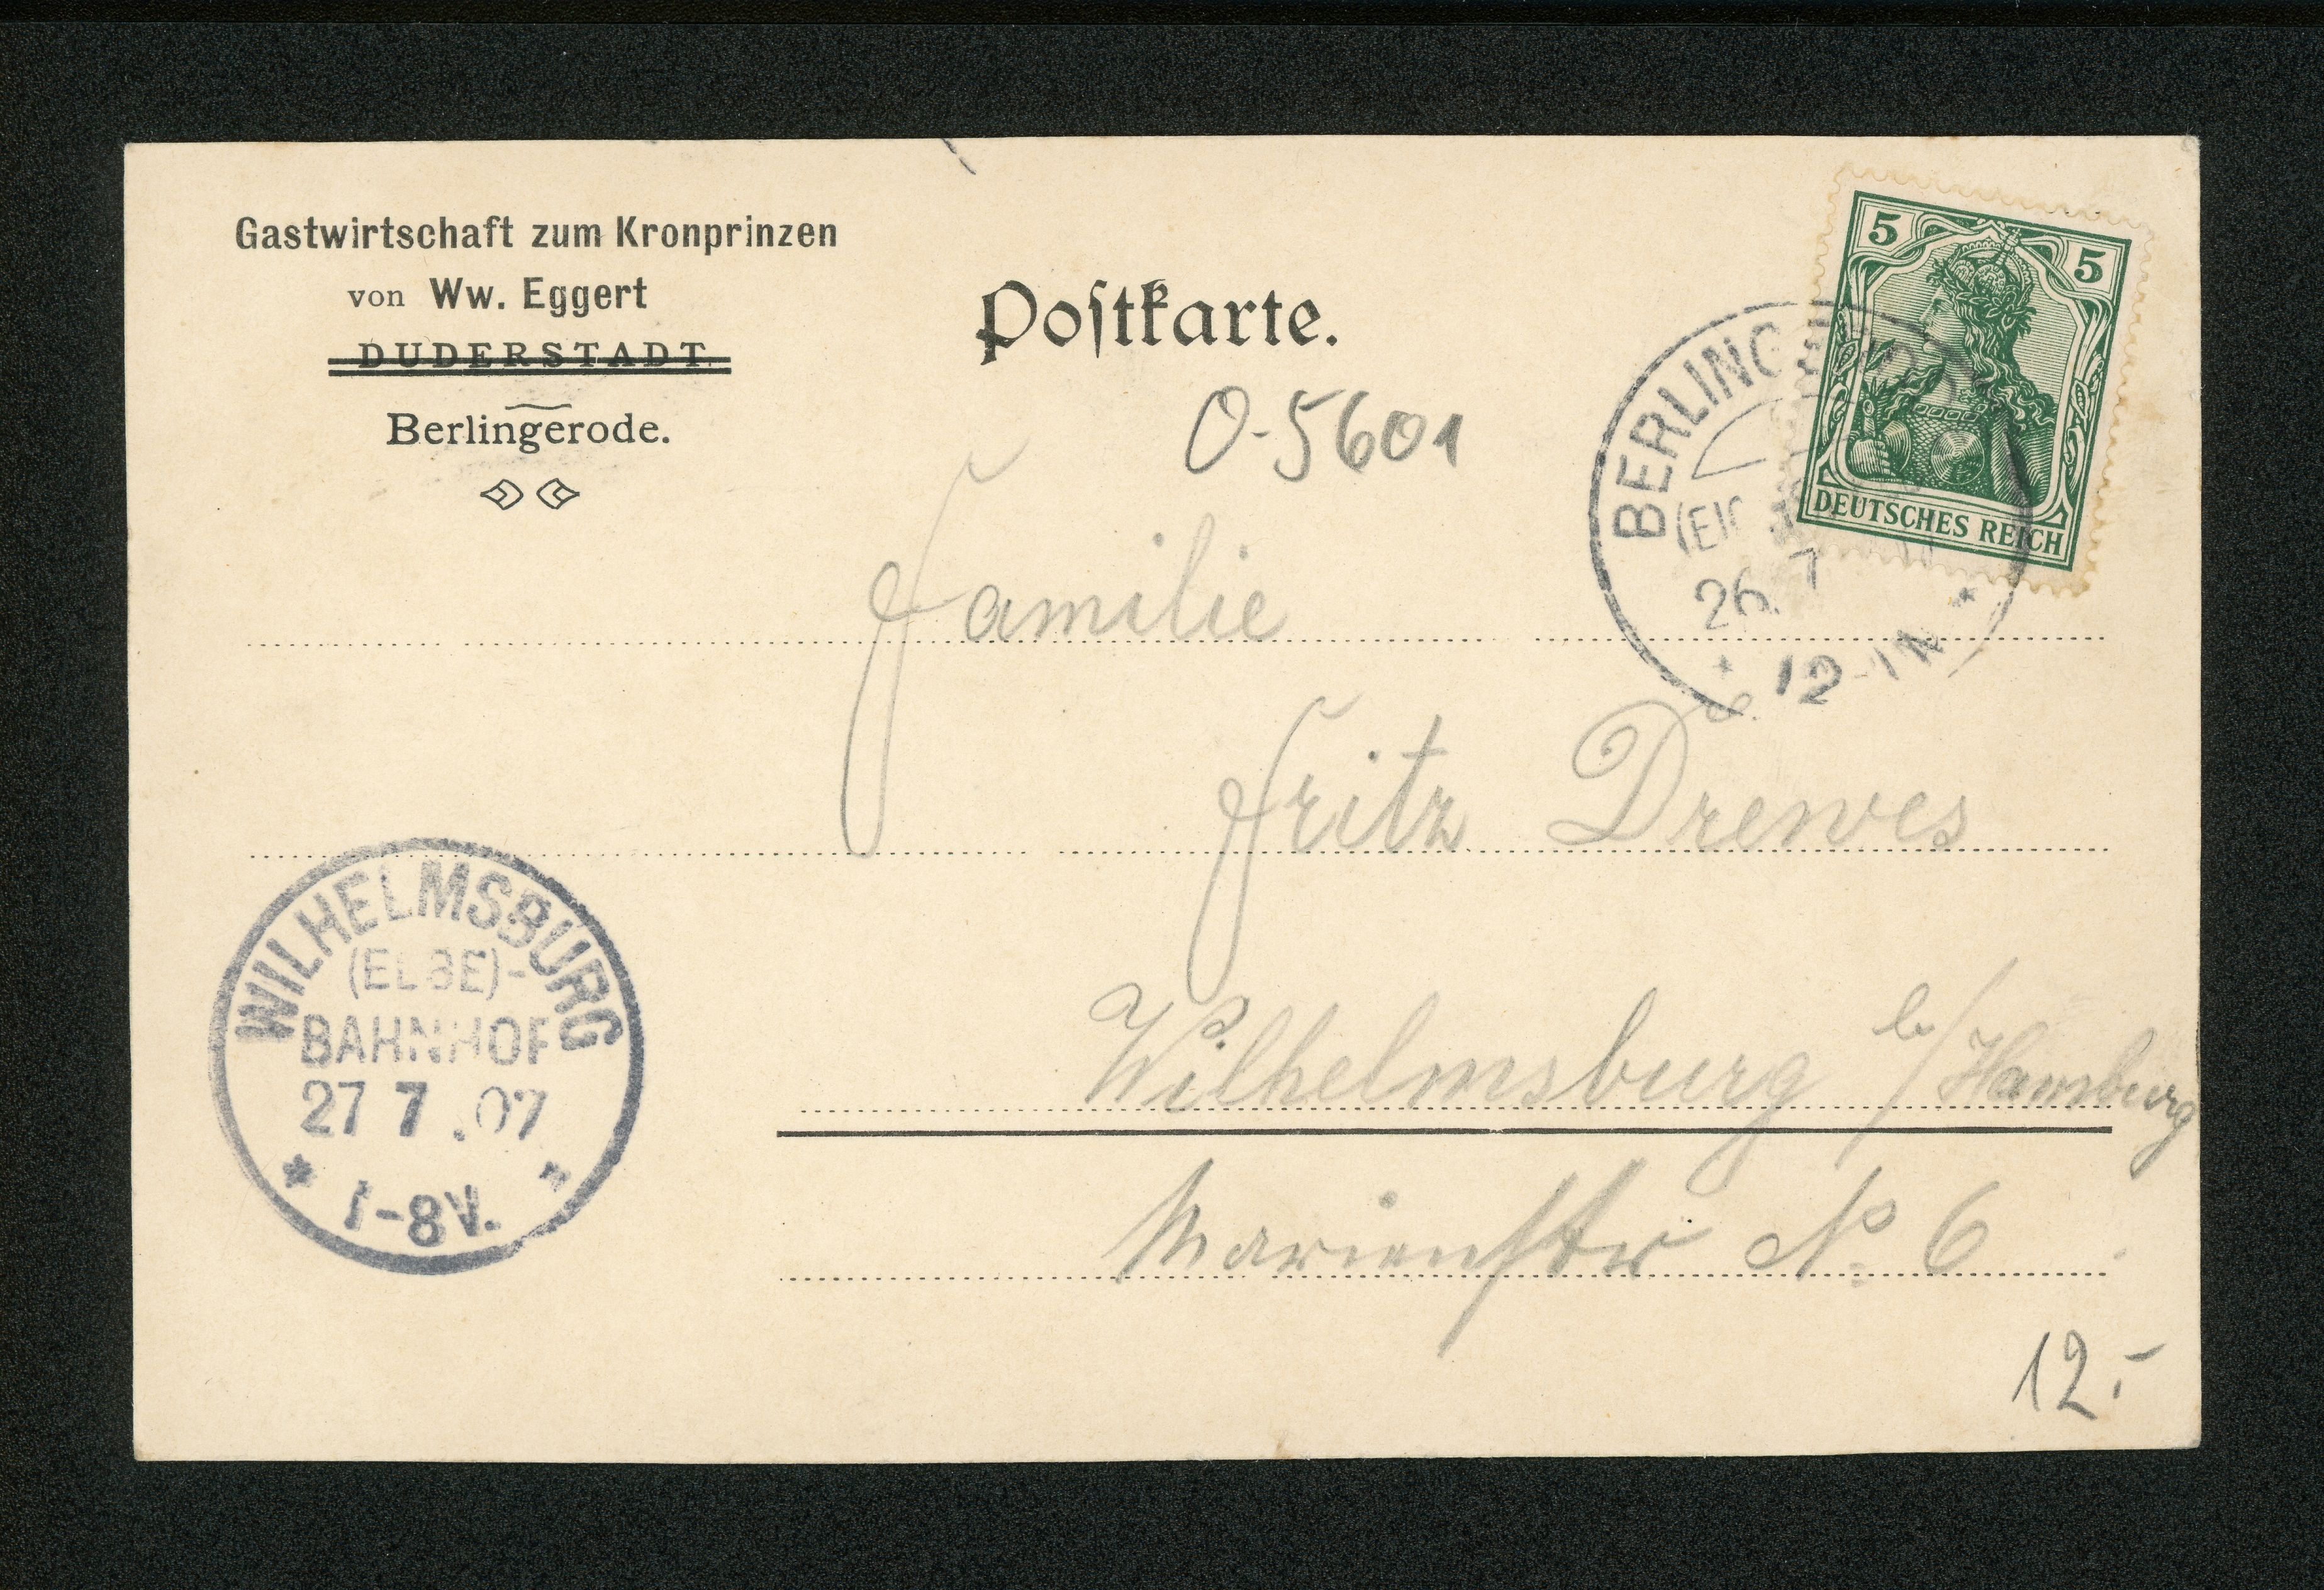 Gastwirtschaft zum Kronprinzen
von Ww. Eggert
DUDERSTADT.
Berlingerode.
Poſtkarte.
O-5601
5 5
DEUTSCHES REICH
26. 7
12-1 N
Familie
Fritz Drewes
Wilhelmsburg b/Hamburg
Marienstr No 6
WILHELMSBURG
(ELBE)-
BAHNHOF
27 7 .07
* 1-8V. *
12.-